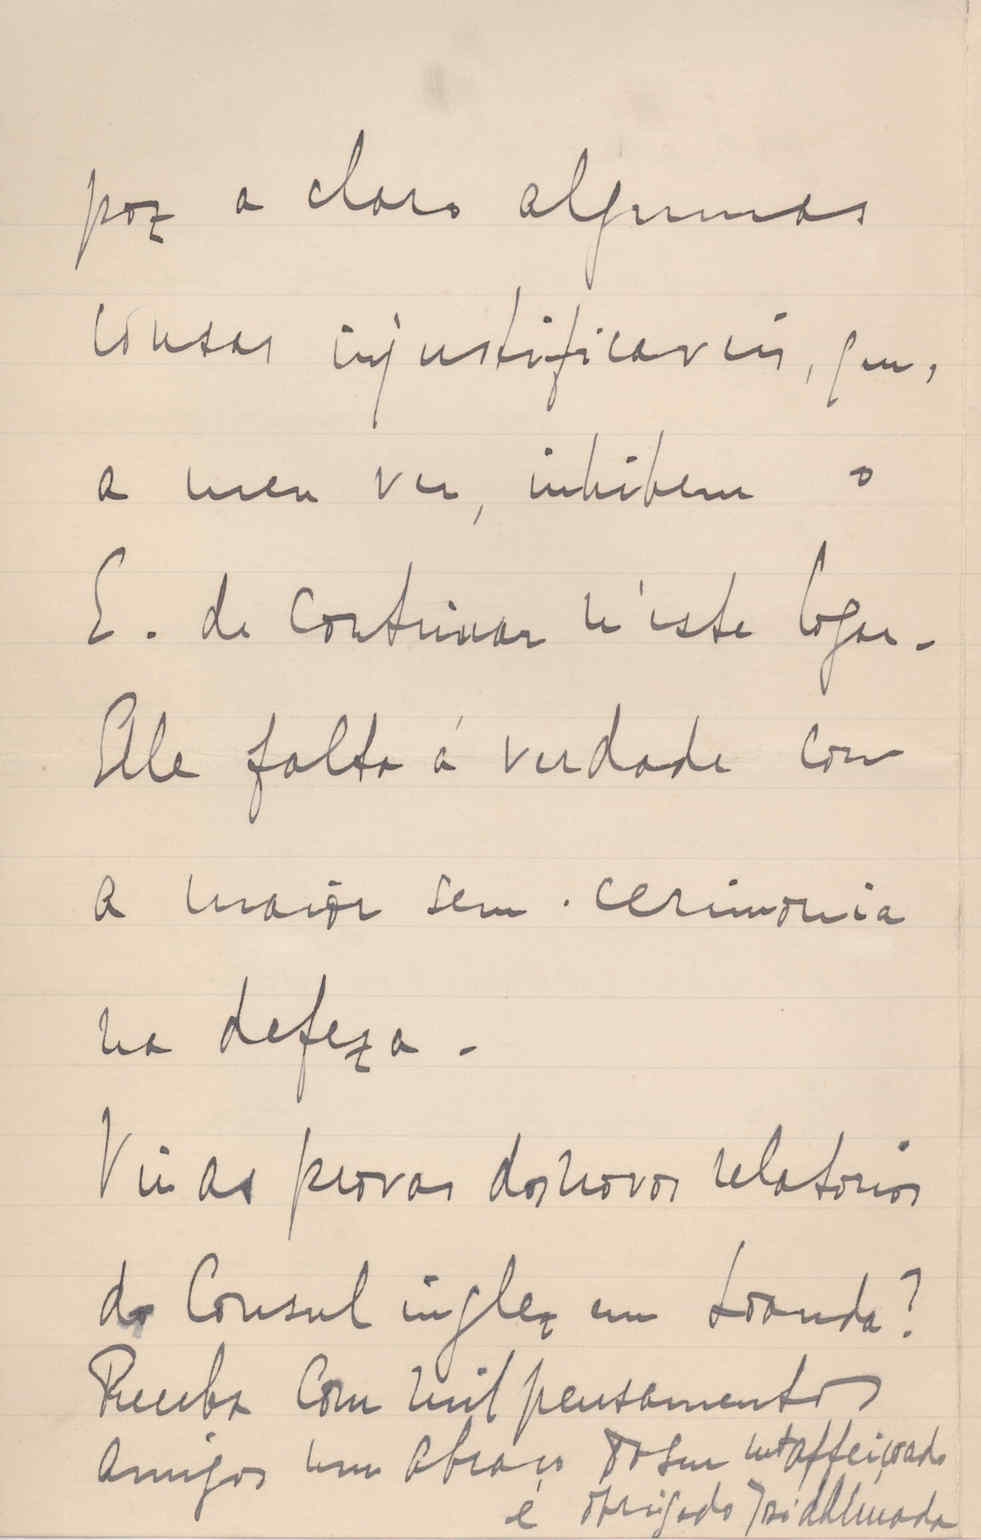 poz a claro algumas
cousas injustificaveis, que,
a meu ver, inhibem o
E. de continuar n'este logar.
Elle falta á verdade com
a maior sem-cerimonia
na defeza.
Viu as provas dos novos relatorios
do Consul inglez em Loanda?
Receba com mil pensamentos
amigos um abraço do seu mto affeiçoado
e obrigado José d'Almada